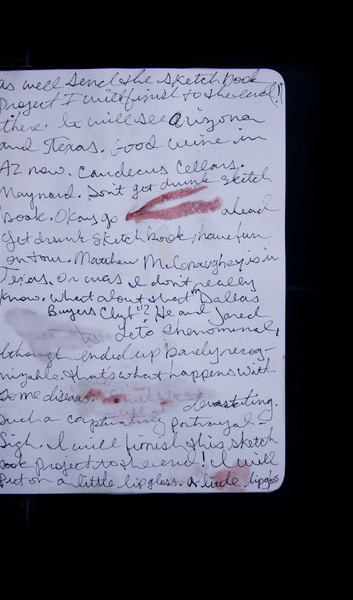 as well send the sketch book
project I will finish to the end!!
there. It will see Arizona
and Texas. Good wine in
AZ now. Caudecus Cellars.
Maynard. Don't get drunk sketch
book. Okay go ahead
get drunk sketch book, have fun
on tour. Matthew McConaughey is in
Texas. Or was I don't really
know. What about that Dallas
Buyers Club"!? He and Jared
Leto phenomenal,
lthough ended up barely recog-
nizable that's what happens with
some disease devastating.
Such a captivating portrayal-
Sigh. I will finish this sketch
book project to the end! I will
put on a little lipgloss. A little lipgloss